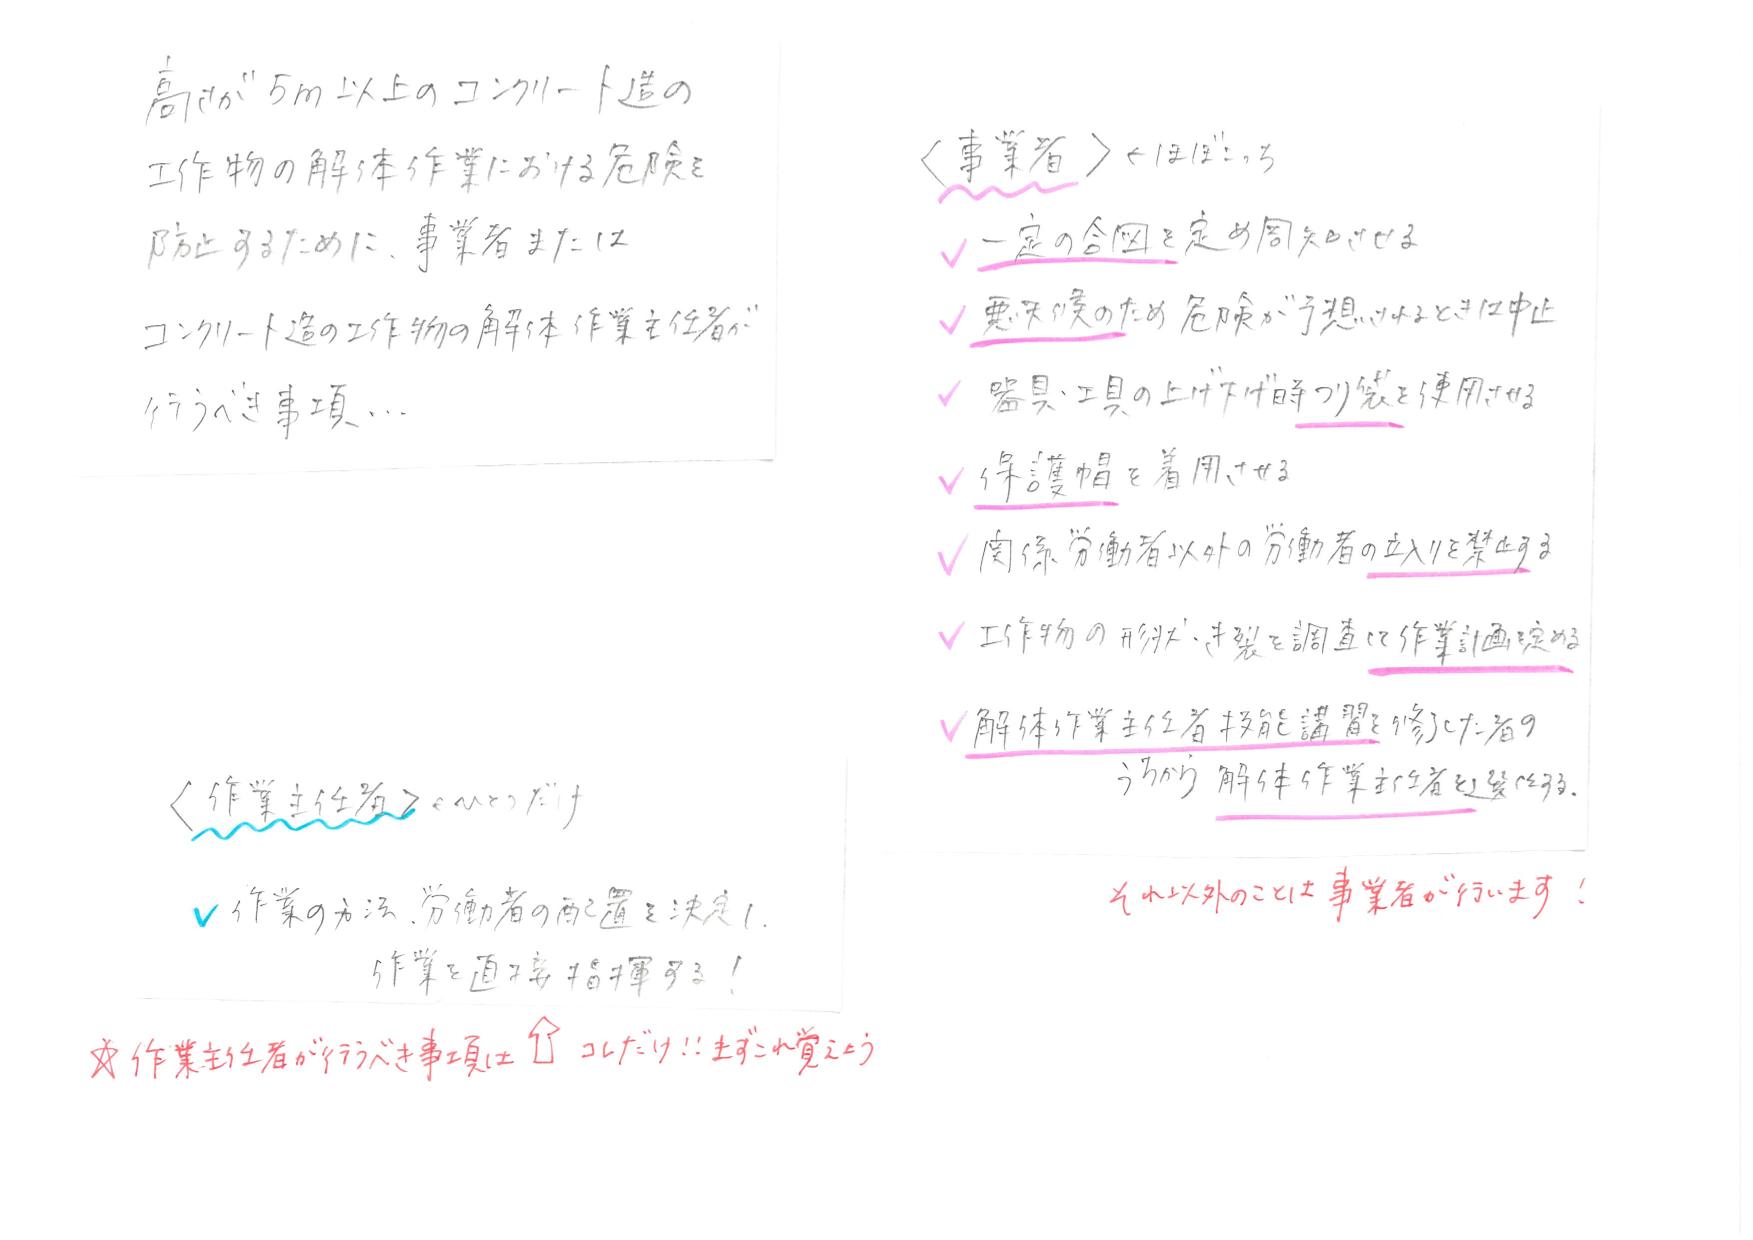 高さが5m以上のコンクリート造の
工作物の解体作業における危険を
防止するために、事業者または
コンクリート造の工作物の解体作業主任者が
行うべき事項...
〈作業主任者〉←ひとつだけ
✓作業の方法、労働者の配置を決定し、
作業を直接指揮する！
☆作業主任者が行うべき事項は⇧コレだけ!!まずこれ覚えよう
〈事業者〉←ほぼこっち
✓一定の合図を定め周知させる
✓悪天候のため危険が予想されるときは中止
✓器具・工具の上げ下げ時つり袋を使用させる
✓保護帽を着用させる
✓関係労働者以外の労働者の立入りを禁止する
✓工作物の形状・き裂を調査して作業計画を定める
✓解体作業主任者技能講習を修了した者の
うちから解体作業主任者を選任する。
それ以外のことは事業者が行います！